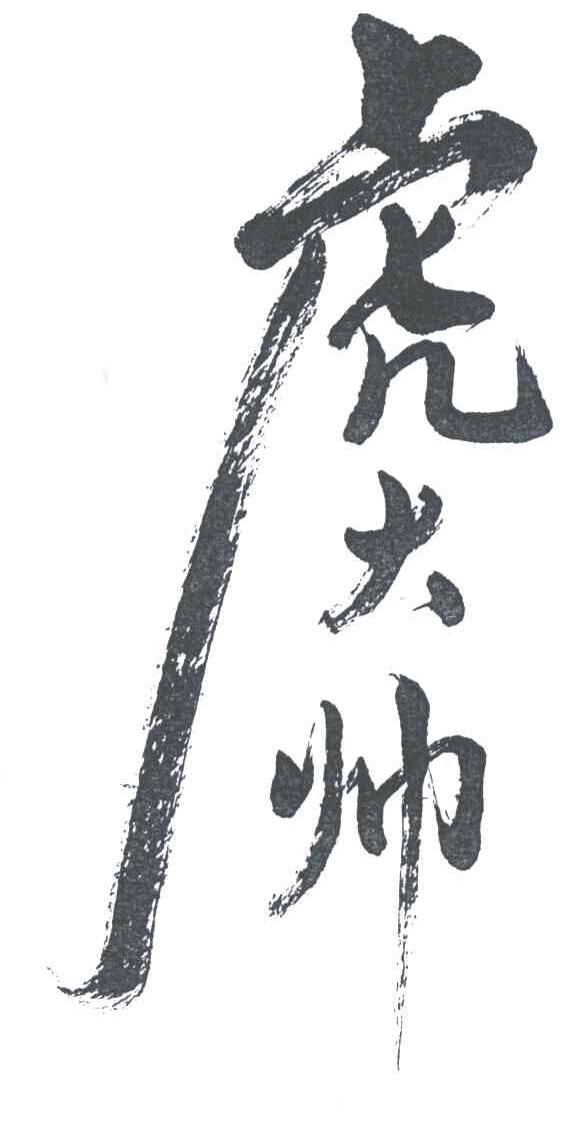 虎大帅